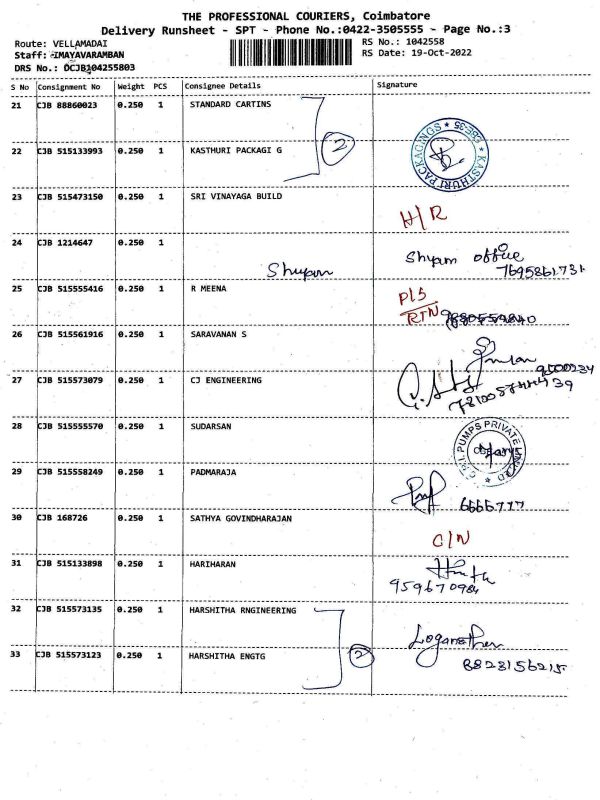 THE PROFESSIONAL COURIERS, Coimbatore
Delivery Runsheet - SPT - Phone No.:0422-3505555 - Page No.:3
Route: VELLAMADAI
RS No.: 1042558
Staff: IMAYAVARAMBAN
RS Date: 19-Oct-2022
DRS No.: DCJB104255803
S No Consignment No Weight PCS Consignee Details Signature
21 CJB 88860023 0.250 1 STANDARD CARTINS
2
22 CJB 515133993 0.250 1 KASTHURI PACKAGI G
KASTHURI PACKAGINGS
23 CJB 515473150 0.250 1 SRI VINAYAGA BUILD
H/R
24 CJB 1214647 0.250 1
Shyam
Shyam office
7695861731
25 CJB 515555416 0.250 1 R MEENA
P/S
RTN
26 CJB 515561916 0.250 1 SARAVANAN S
27 CJB 515573079 0.250 1 CJ ENGINEERING
28 CJB 515555570 0.250 1 SUDARSAN
PUMPS PRIVATE
29 CJB 515558249 0.250 1 PADMARAJA
6666777
30 CJB 168726 0.250 1 SATHYA GOVINDHARAJAN
C/N
31 CJB 515133898 0.250 1 HARIHARAN
959670984
32 CJB 515573135 0.250 1 HARSHITHA RNGINEERING
Loganathan
33 CJB 515573123 0.250 1 HARSHITHA ENGTG
2
8823156215